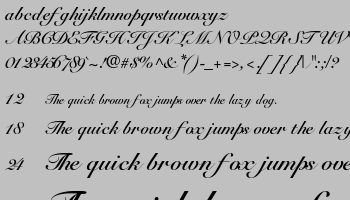 abcdefghijklmnopqrstuvwxyz
ABCDEFGHIJKLMNOPQRSTUV
0123456789`~.!@#$%^&*()-_+=>,<./[]{}/\"':;/?
12 The quick brown fox jumps over the lazy dog.
18 The quick brown fox jumps over the lazy
24 The quick brown fox jumps over